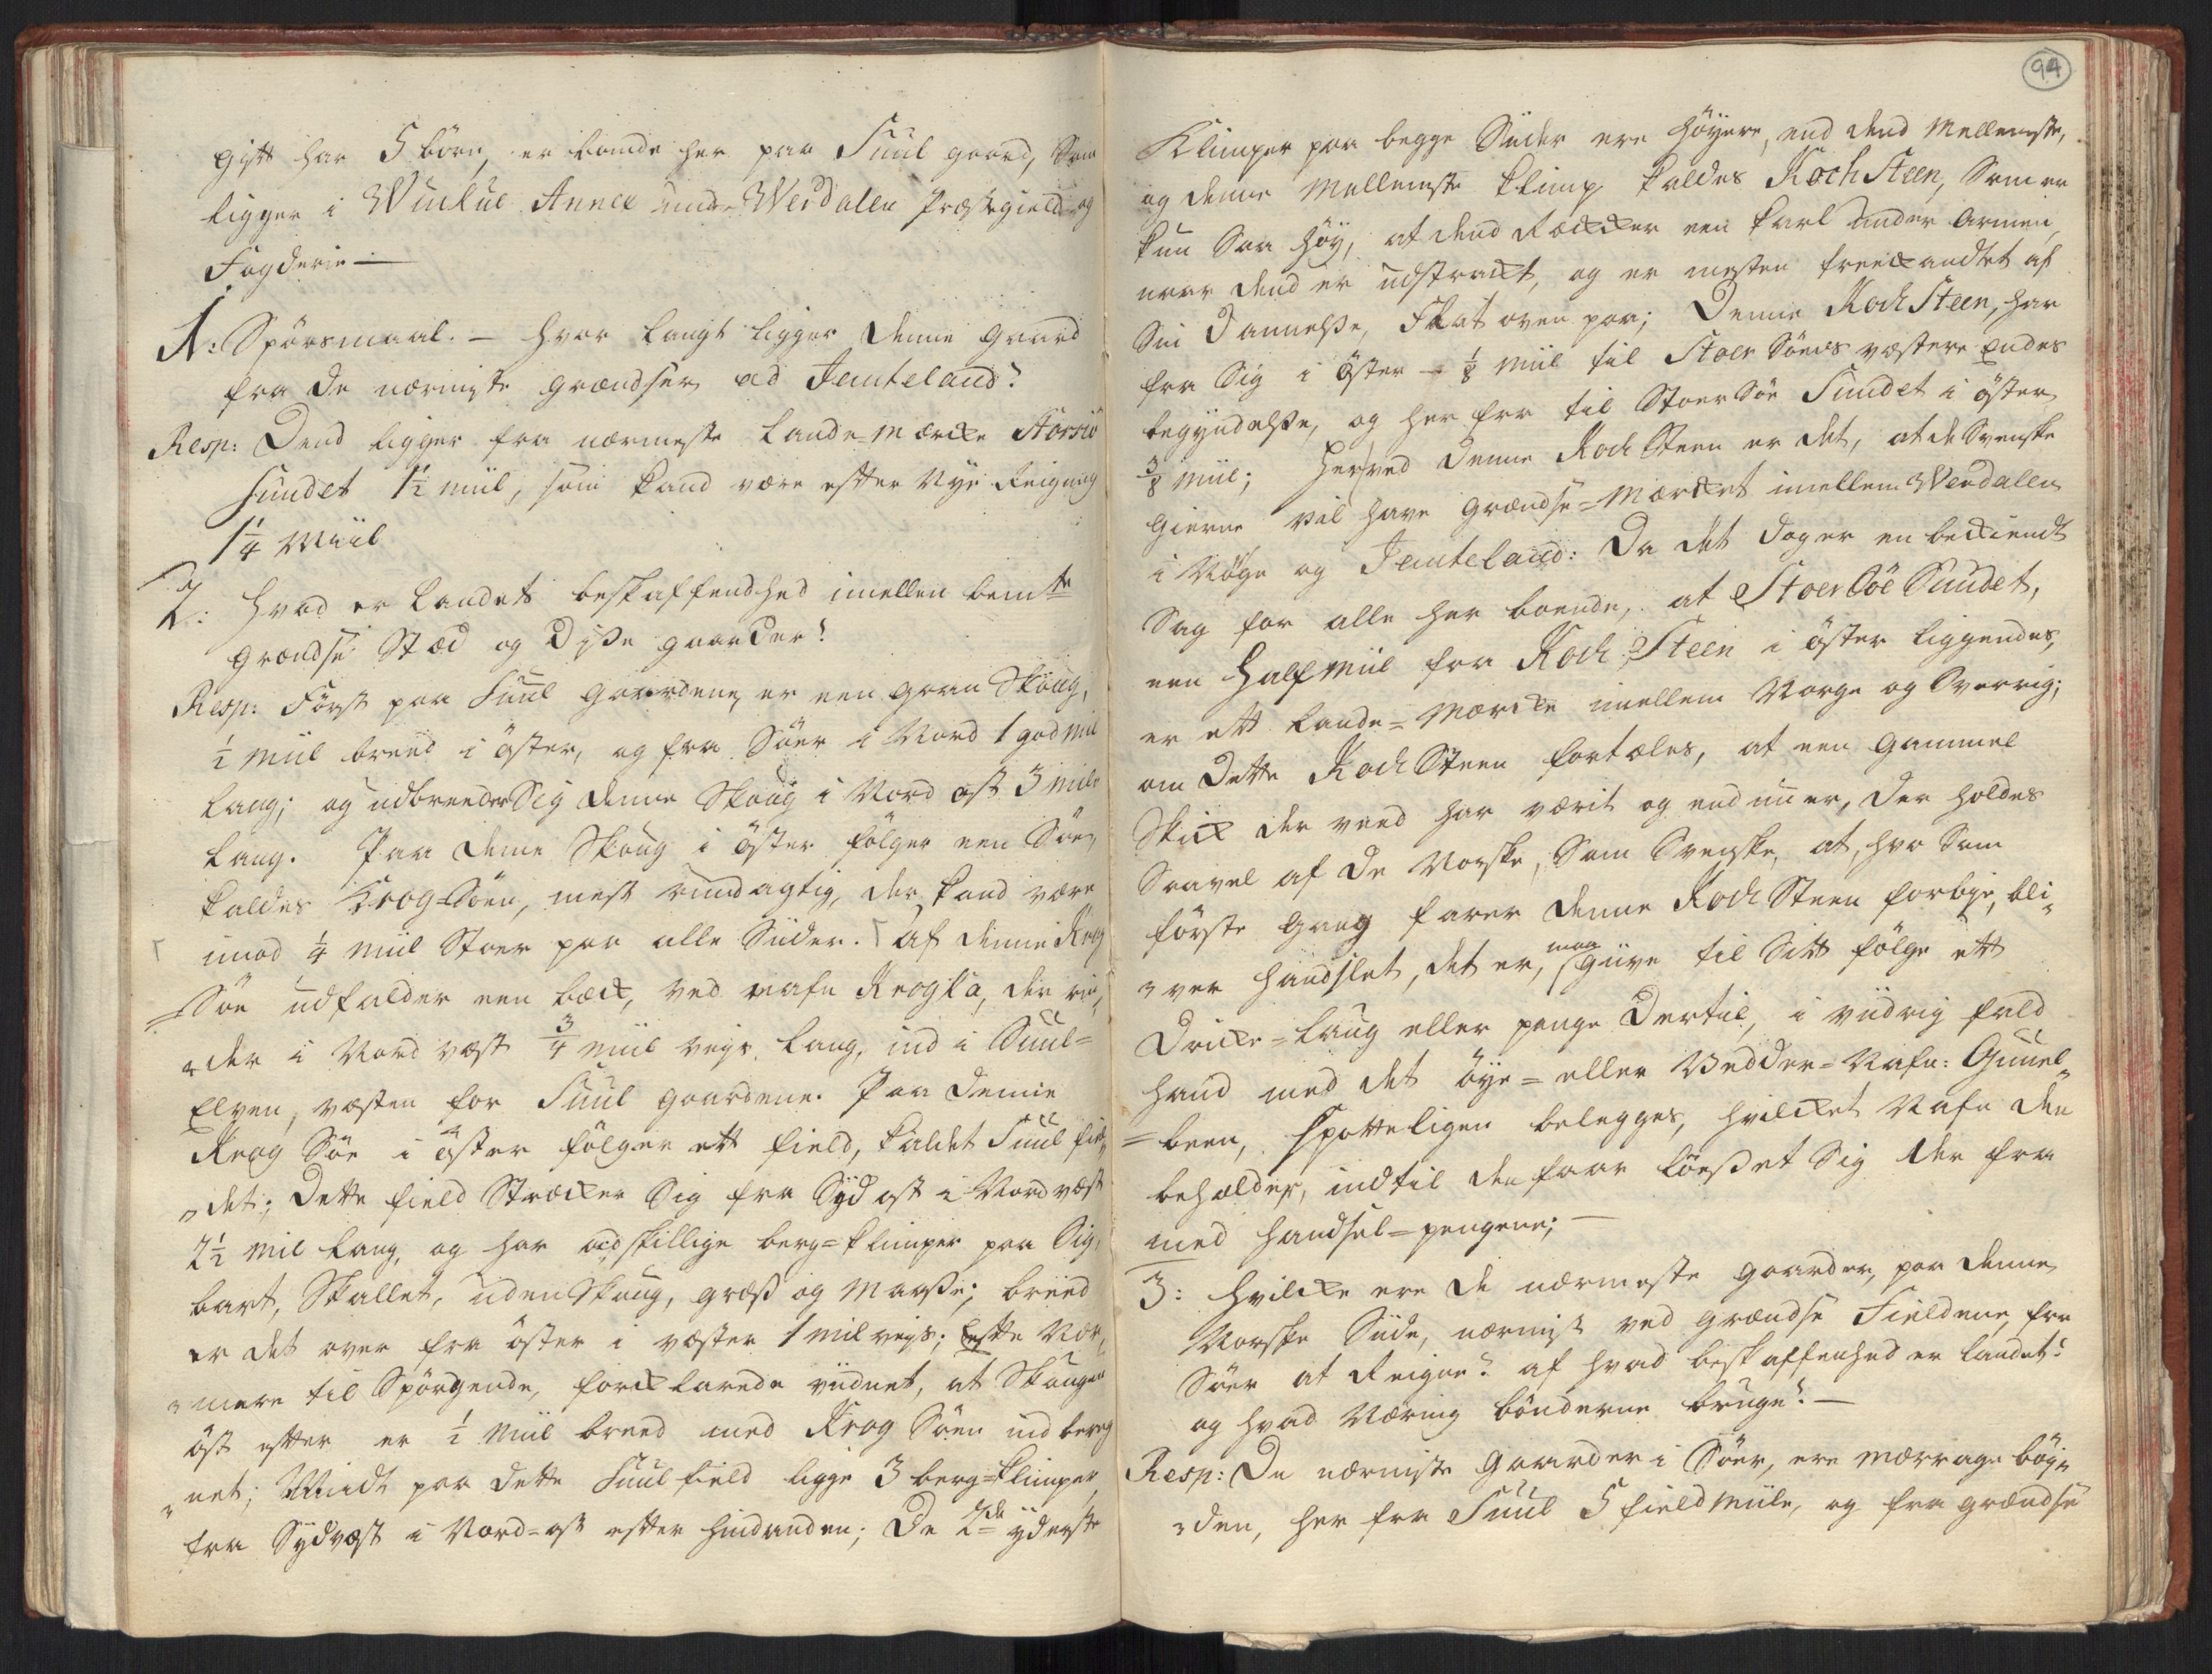 gift har 5 börn, er boende her paa Suul gaard, Som
ligger i Winkue Annex under Werdalen Præstegield og
Fogderie —
1: Spörsmaal. — hvor langt ligger denne gaard
fra de nærmiste grændser ad Jemteland?
Resp: Dend ligger fra nærmeste Lande-mærcke Störsiö
Sundet 1½ miil, som kand være efter Nye Reigning
1¼ Miil
2: hvad er Landets beskaffendhed imellen bemte
grændse Stæd og Disse gaarder?
Resp: Först paa Suul gaardene, er een gran Skoug,
½ miil breed i öster, og fra Söer i Nord 1 god miil
lang; og udbreeder Sig denne Skoug i Nord ost 3 mile
lang. Paa denne Skoug i öster fölger een Söe,
kaldes Krog-Söen, mest rundagtig, der kand være
imod ¼ miil Stoer paa alle Siider. af denne Krog
=Söe udfalder een bæck, ved nafn Krogs a, der rin„
„der i Nord væst ¾ miil veys lang, ind i Suul=
Elven, væsten for Suul gaardene. Paa denne
Krog Söe i öster fölger ett field, kaldet Suul fiel„
„det; dette field Strecker Sig fra Syd ost i Nord væst
2½ mil lang, og har adskillige berg=klimper paa Sig,
bart, Skallet, uden Skoug, græs og Maasse; breed
er det over fra öster i væster 1 mil veys; Efter Nær„
„mere til Spörgende, forcklarede vidnet, at Skougen
öst efter er ½ miil breed med Krog Söen indbereg
„net; Midt paa dette Suul field ligge 3 berg=klimper,
fra Sydvæst i Nord=ost efter hinanden; De 2de yderste
94
Klimper paa begge Siider ere höyere, end dend mellemste,
og denne mellemste klimp kaldes Koch Steen, Som er
kun Saa höy, at dend Reckcker een karl under Armen,
naar dend er udstrackt, og er mesten treekandtet af
Sin Dannelsse, Flat oven paa; Denne Koch Steen, har
fra Sig i Öster — ⅛ miil til Stoer Söens væstere Endes
begyndelsse, og her fra til Stoer Söe Sundet i öster
⅜ miil; herved denne Koch Steen er det, at de Svenske
gierne vil have grændse=Mærcket imellem Werdalen
i Norge og Jemteland: Da det dog er en beckiendt
Sag for alle her boende, at Stoer Söe Sundet,
een half miil fra Koch-Steen i öster liggendes,
er ett Lande=Mærcke imellem Norge og Sverrig;
om dette Koch Steen fortæles, at een gammel
Skick der veed har værit og endnu er, der holdes
Saavel af de Norske, Som Svenske, at, hvo Som
förste gang farer denne Koch Steen forbye, bli„
„ver handslet, det er, maa giive til Sitt fölge ett
Dricke=laug eller penge Dertil, i viidrig fald
hand med det öye= eller Vedder=Nafn: Guuel„
=been, spotteligen belegges, hvilcket Nafn den
beholder, indtil den faar löesset Sig der fra
med handsel=pengene; —
3: Hvilcke ere de nærmeste gaarder, paa denne
Norske Siide, nærmest ved grændse Fieldene, fra
Söer at Reigne? af hvad beskaffenhed er landet?
og hvad Næring bönderne bruge? —
Resp: De nærmiste gaarder i Söer, ere Mærrage böy„
„den, her fra Suul 5 field Miile, og fra grændse